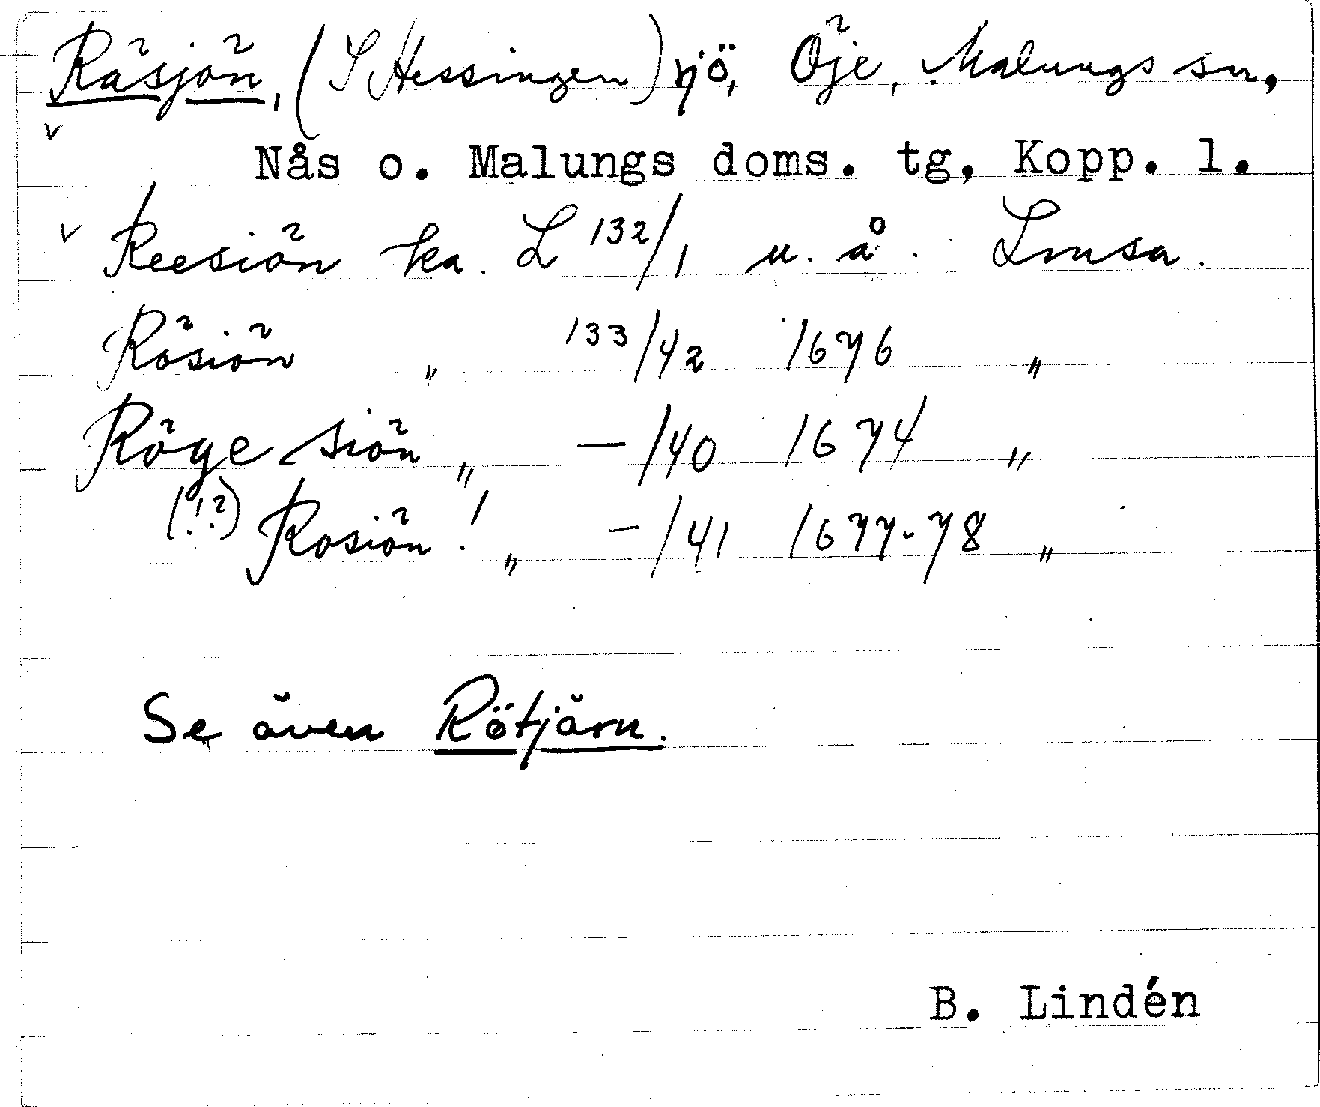 Räsjön, (S Hessingen) sjö, Öje, Malungs sn,
Nås o. Malungs doms. tg, Kopp. l.
Reesiön ka. L 132/1 u. å. Lmsa.
Rösiön " 133/42 1676 "
Röge siön " — /40 1674 "
(!?) Rosiön! " — /41 1677-78 "
Se även Rötjärn.
B. Lindén